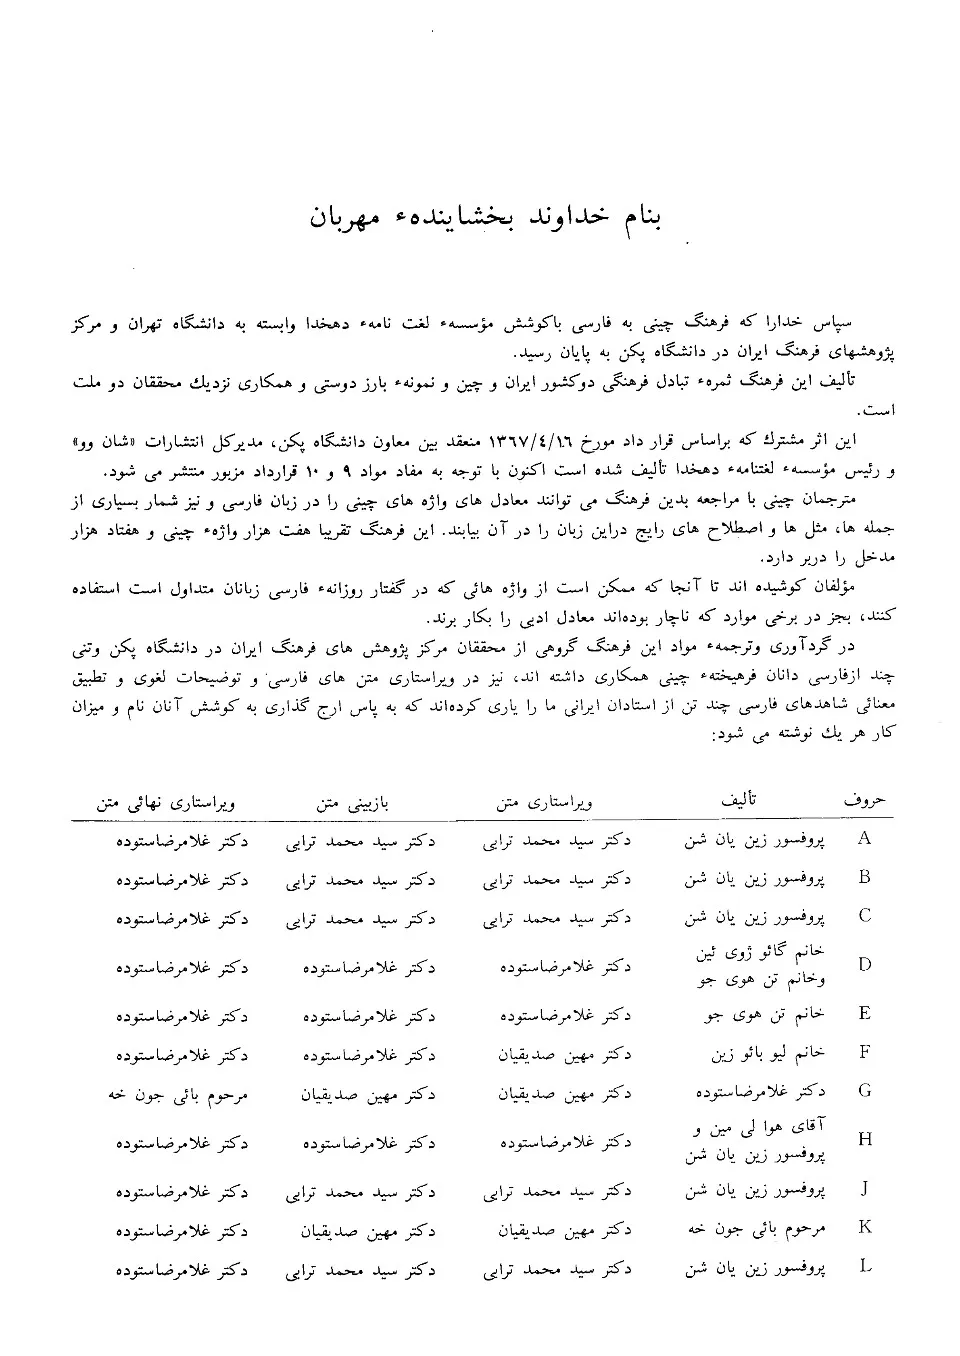 بنام خداوند بخشاینده‌ء مهربان
سپاس خدارا که فرهنگ چینی به فارسی باکوشش مؤسسه‌ء لغت نامه‌ء دهخدا وابسته به دانشگاه تهران و مرکز
پژوهشهای فرهنگ ایران در دانشگاه پکن به پایان رسید.
تألیف این فرهنگ ثمره‌ء تبادل فرهنگی دوکشور ایران و چین و نمونه‌ء بارز دوستی و همکاری نزدیك محققان دو ملت
است.
این اثر مشترك که براساس قرار داد مورخ ۱۳۶۷/۴/۱۶ منعقد بین معاون دانشگاه پکن، مدیرکل انتشارات «شان وو»
و رئیس مؤسسه‌ء لغتنامه‌ء دهخدا تألیف شده است اکنون با توجه به مفاد مواد ۹ و ۱۰ قرارداد مزبور منتشر می شود.
مترجمان چینی با مراجعه بدین فرهنگ می توانند معادل های واژه های چینی را در زبان فارسی و نیز شمار بسیاری از
جمله ها، مثل ها و اصطلاح های رایج دراین زبان را در آن بیابند. این فرهنگ تقریبا هفت هزار واژه‌ء چینی و هفتاد هزار
مدخل را دربر دارد.
مؤلفان کوشیده اند تا آنجا که ممکن است از واژه هائی که در گفتار روزانه‌ء فارسی زبانان متداول است استفاده
کنند، بجز در برخی موارد که ناچار بوده‌اند معادل ادبی را بکار برند.
در گردآوری وترجمه‌ء مواد این فرهنگ گروهی از محققان مرکز پژوهش های فرهنگ ایران در دانشگاه پکن وتنی
چند ازفارسی دانان فرهیخته‌ء چینی همکاری داشته اند، نیز در ویراستاری متن های فارسی و توضیحات لغوی و تطبیق
معنائی شاهدهای فارسی چند تن از استادان ایرانی ما را یاری کرده‌اند که به پاس ارج گذاری به کوشش آنان نام و میزان
کار هر یك نوشته می شود:
حروف تألیف ویراستاری متن بازبینی متن ویراستاری نهائی متن
A پروفسور زین یان شن دکتر سید محمد ترابی دکتر سید محمد ترابی دکتر غلامرضاستوده
B پروفسور زین یان شن دکتر سید محمد ترابی دکتر سید محمد ترابی دکتر غلامرضاستوده
C پروفسور زین یان شن دکتر سید محمد ترابی دکتر سید محمد ترابی دکتر غلامرضاستوده
خانم گائو ژوی ئین
D دکتر غلامرضاستوده دکتر غلامرضاستوده دکتر غلامرضاستوده
وخانم تن هوی جو
E خانم تن هوی جو دکتر غلامرضاستوده دکتر غلامرضاستوده دکتر غلامرضاستوده
F خانم لیو بائو زین دکتر مهین صدیقیان دکتر غلامرضاستوده دکتر غلامرضاستوده
G دکتر غلامرضاستوده دکتر مهین صدیقیان دکتر مهین صدیقیان مرحوم بائی جون خه
آقای هوا لی مین و
H دکتر غلامرضاستوده دکتر غلامرضاستوده دکتر غلامرضاستوده
پروفسور زین یان شن
J پروفسور زین یان شن دکتر سید محمد ترابی دکتر سید محمد ترابی دکتر غلامرضاستوده
K مرحوم بائی جون خه دکتر مهین صدیقیان دکتر مهین صدیقیان دکتر غلامرضاستوده
L پروفسور زین یان شن دکتر سید محمد ترابی دکتر سید محمد ترابی دکتر غلامرضاستوده